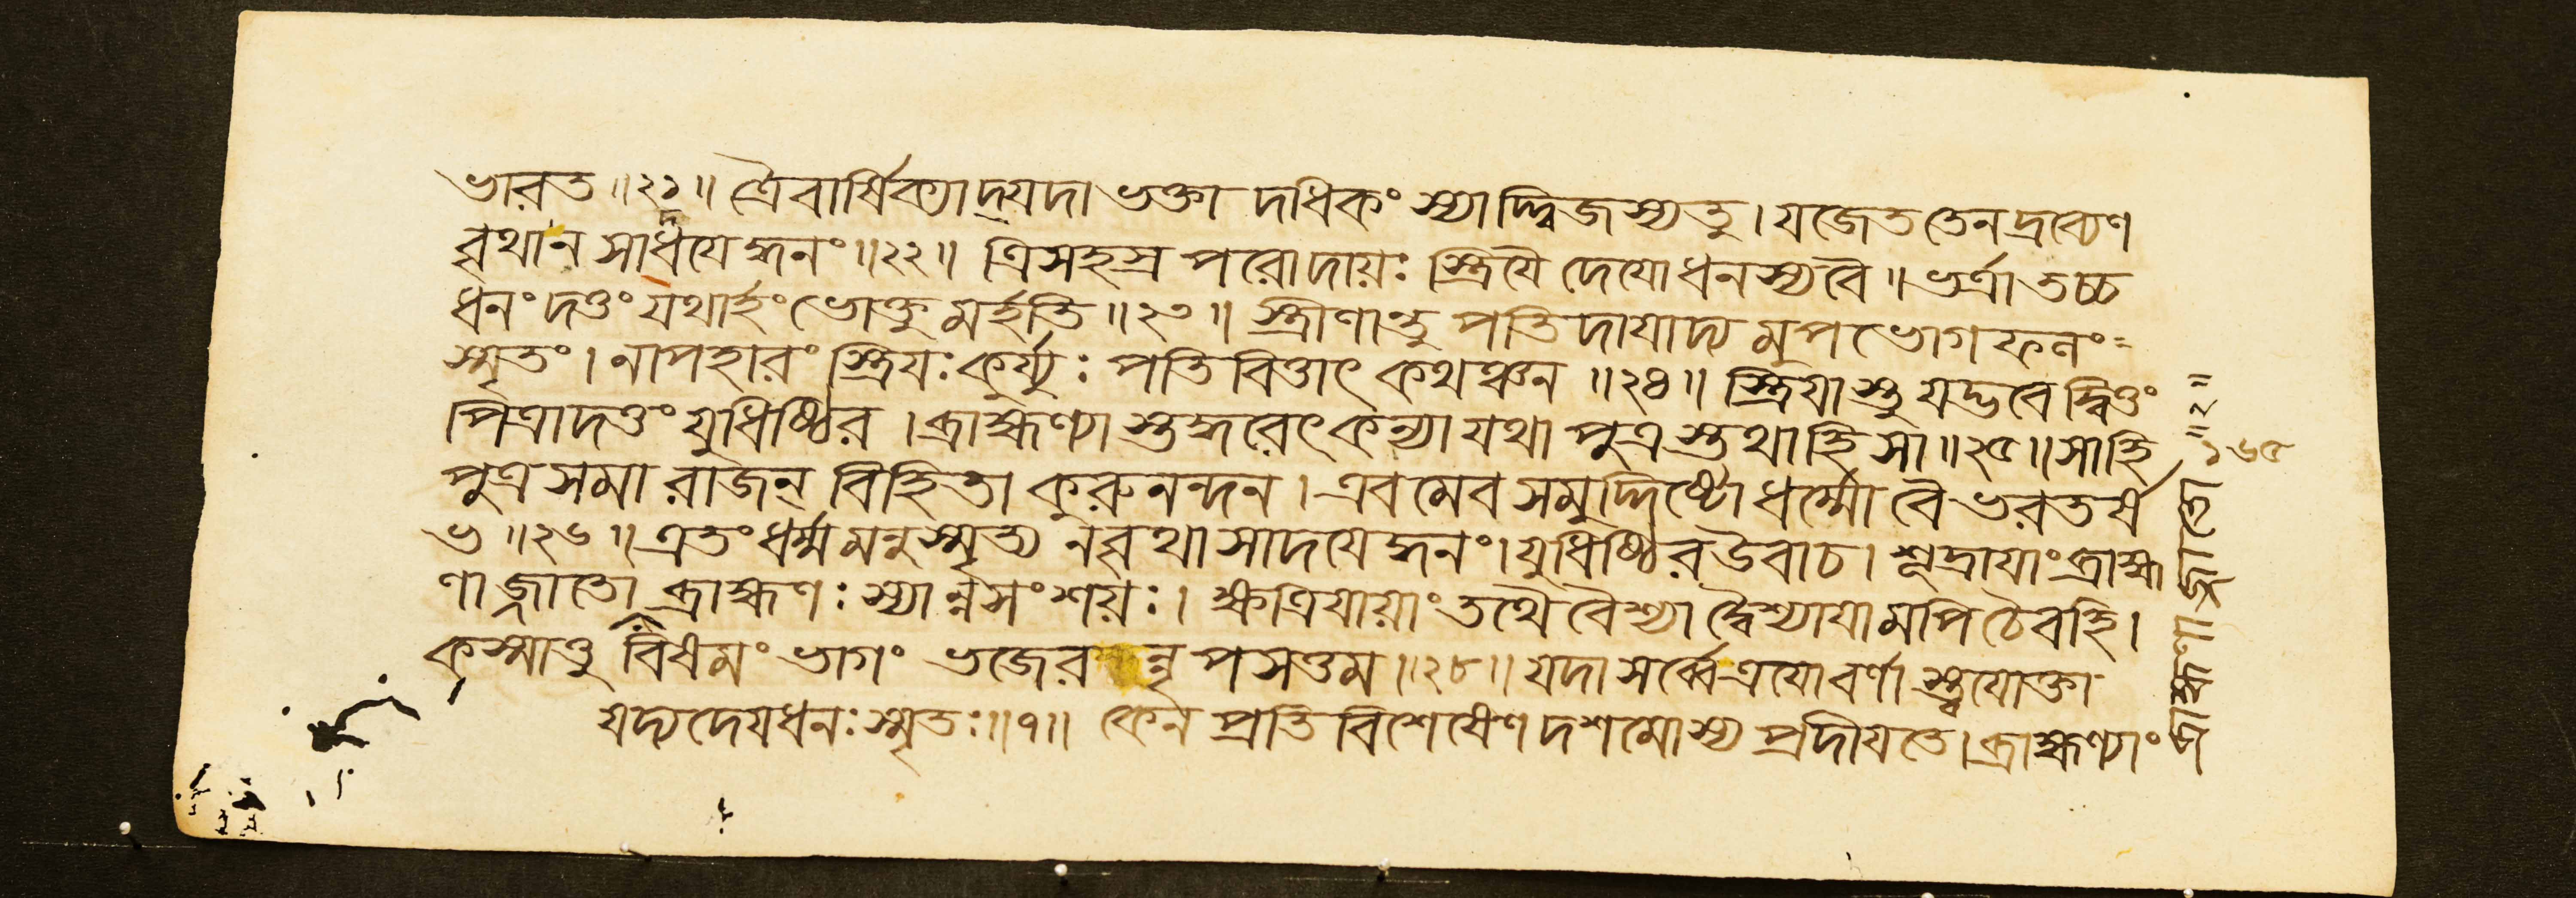 ভারত ॥ ২১ ॥ ত্রৈবার্ষিক্যাদ্যদা ভক্তা দধিকং স্যাদ্দ্বিজস্যতু । যজেত তেন দ্রব্যেণ
বৃথা ন সাধযেদ্ধনং ॥ ২২ ॥ ত্রিসহস্র পরোদায়ঃ স্ত্রিযৈ দেযো ধনস্যবৈ ॥ ভর্ত্রা তচ্চ
ধনং দত্তং যথার্হং ভোক্তু মর্হতি ॥ ২৩ ॥ স্ত্রীণান্তু পতি দাযাদ্য মুপভোগ ফলং
স্মৃতং । নাপহারং স্ত্রিযঃ কুর্য্যুঃ পতি বিত্তাৎ কথঞ্চন ॥ ২৪ ॥ স্ত্রিযাস্তু যদ্ভবেদ্বিত্তং
পিত্রাদত্তং যুধিষ্ঠির । ব্রাহ্মণ্যা স্তদ্ধরেৎ কন্যা যথা পুত্র স্তথাহি সা ॥ ২৫ ॥ সাহি
পুত্র সমা রাজন্ বিহিতা কুরুনন্দন । এবমেব সমুদ্দিষ্টো ধর্ম্মো বৈ ভরতর্ষ
ভ ॥ ২৬ ॥ এতং ধর্ম্ম মনুস্মৃত্য ন বৃথা সাদযেদ্ধনং । যুধিষ্ঠির উবাচ । শূদ্রাযাং ব্রাহ্ম
ণাজ্জাতো ব্রাহ্মণঃ স্যান্নসংশয়ঃ । ক্ষত্রিযাযাং তথৈবৈশ্যা দ্বৈশ্যাযামপি চৈবহি ।
কস্মাত্তু বিষমং ভাগং ভজেরন্নৃপসত্তম ॥ ২৮ ॥ যদা সর্ব্বে ত্রযো বর্ণা স্ত্বযোক্তা
যদ্যদেযধনঃ স্মৃতঃ ॥ ৭ ॥ কেন প্রতি বিশেষেণ দশমোস্য প্রদীযতে । ব্রাহ্মণ্যাং
১৬৫